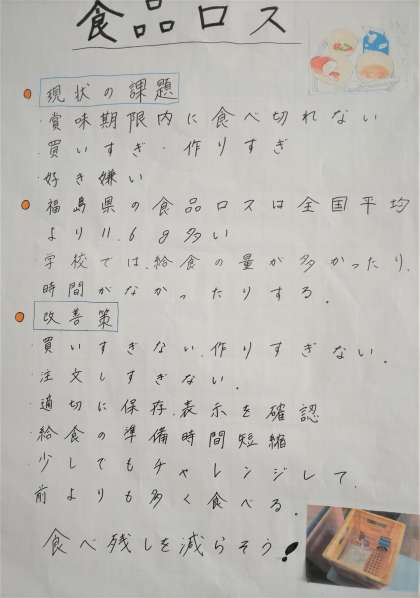 食品ロス
現状の課題
・賞味期限内に食べ切れない
・買いすぎ・作りすぎ
・好き嫌い
福島県の食品ロスは全国平均
より11.6g多い
学校では、給食の量が多かったり、
時間がなかったりする。
改善策
・買いすぎない、作りすぎない。
・注文しすぎない。
・適切に保存、表示を確認
・給食の準備時間短縮
・少しでもチャレンジして、
前よりも多く食べる。
食べ残しを減らそう!